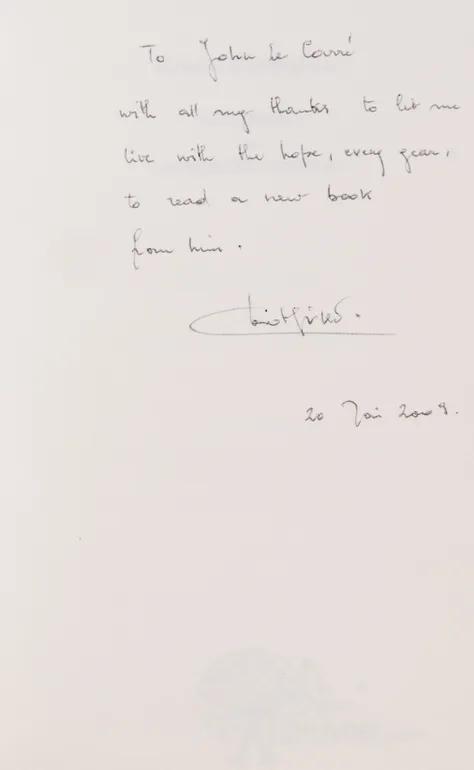 To John le Carré
with all my thanks to let me
live with the hope, every year,
to read a new book
from him.
20 Mai 2009.